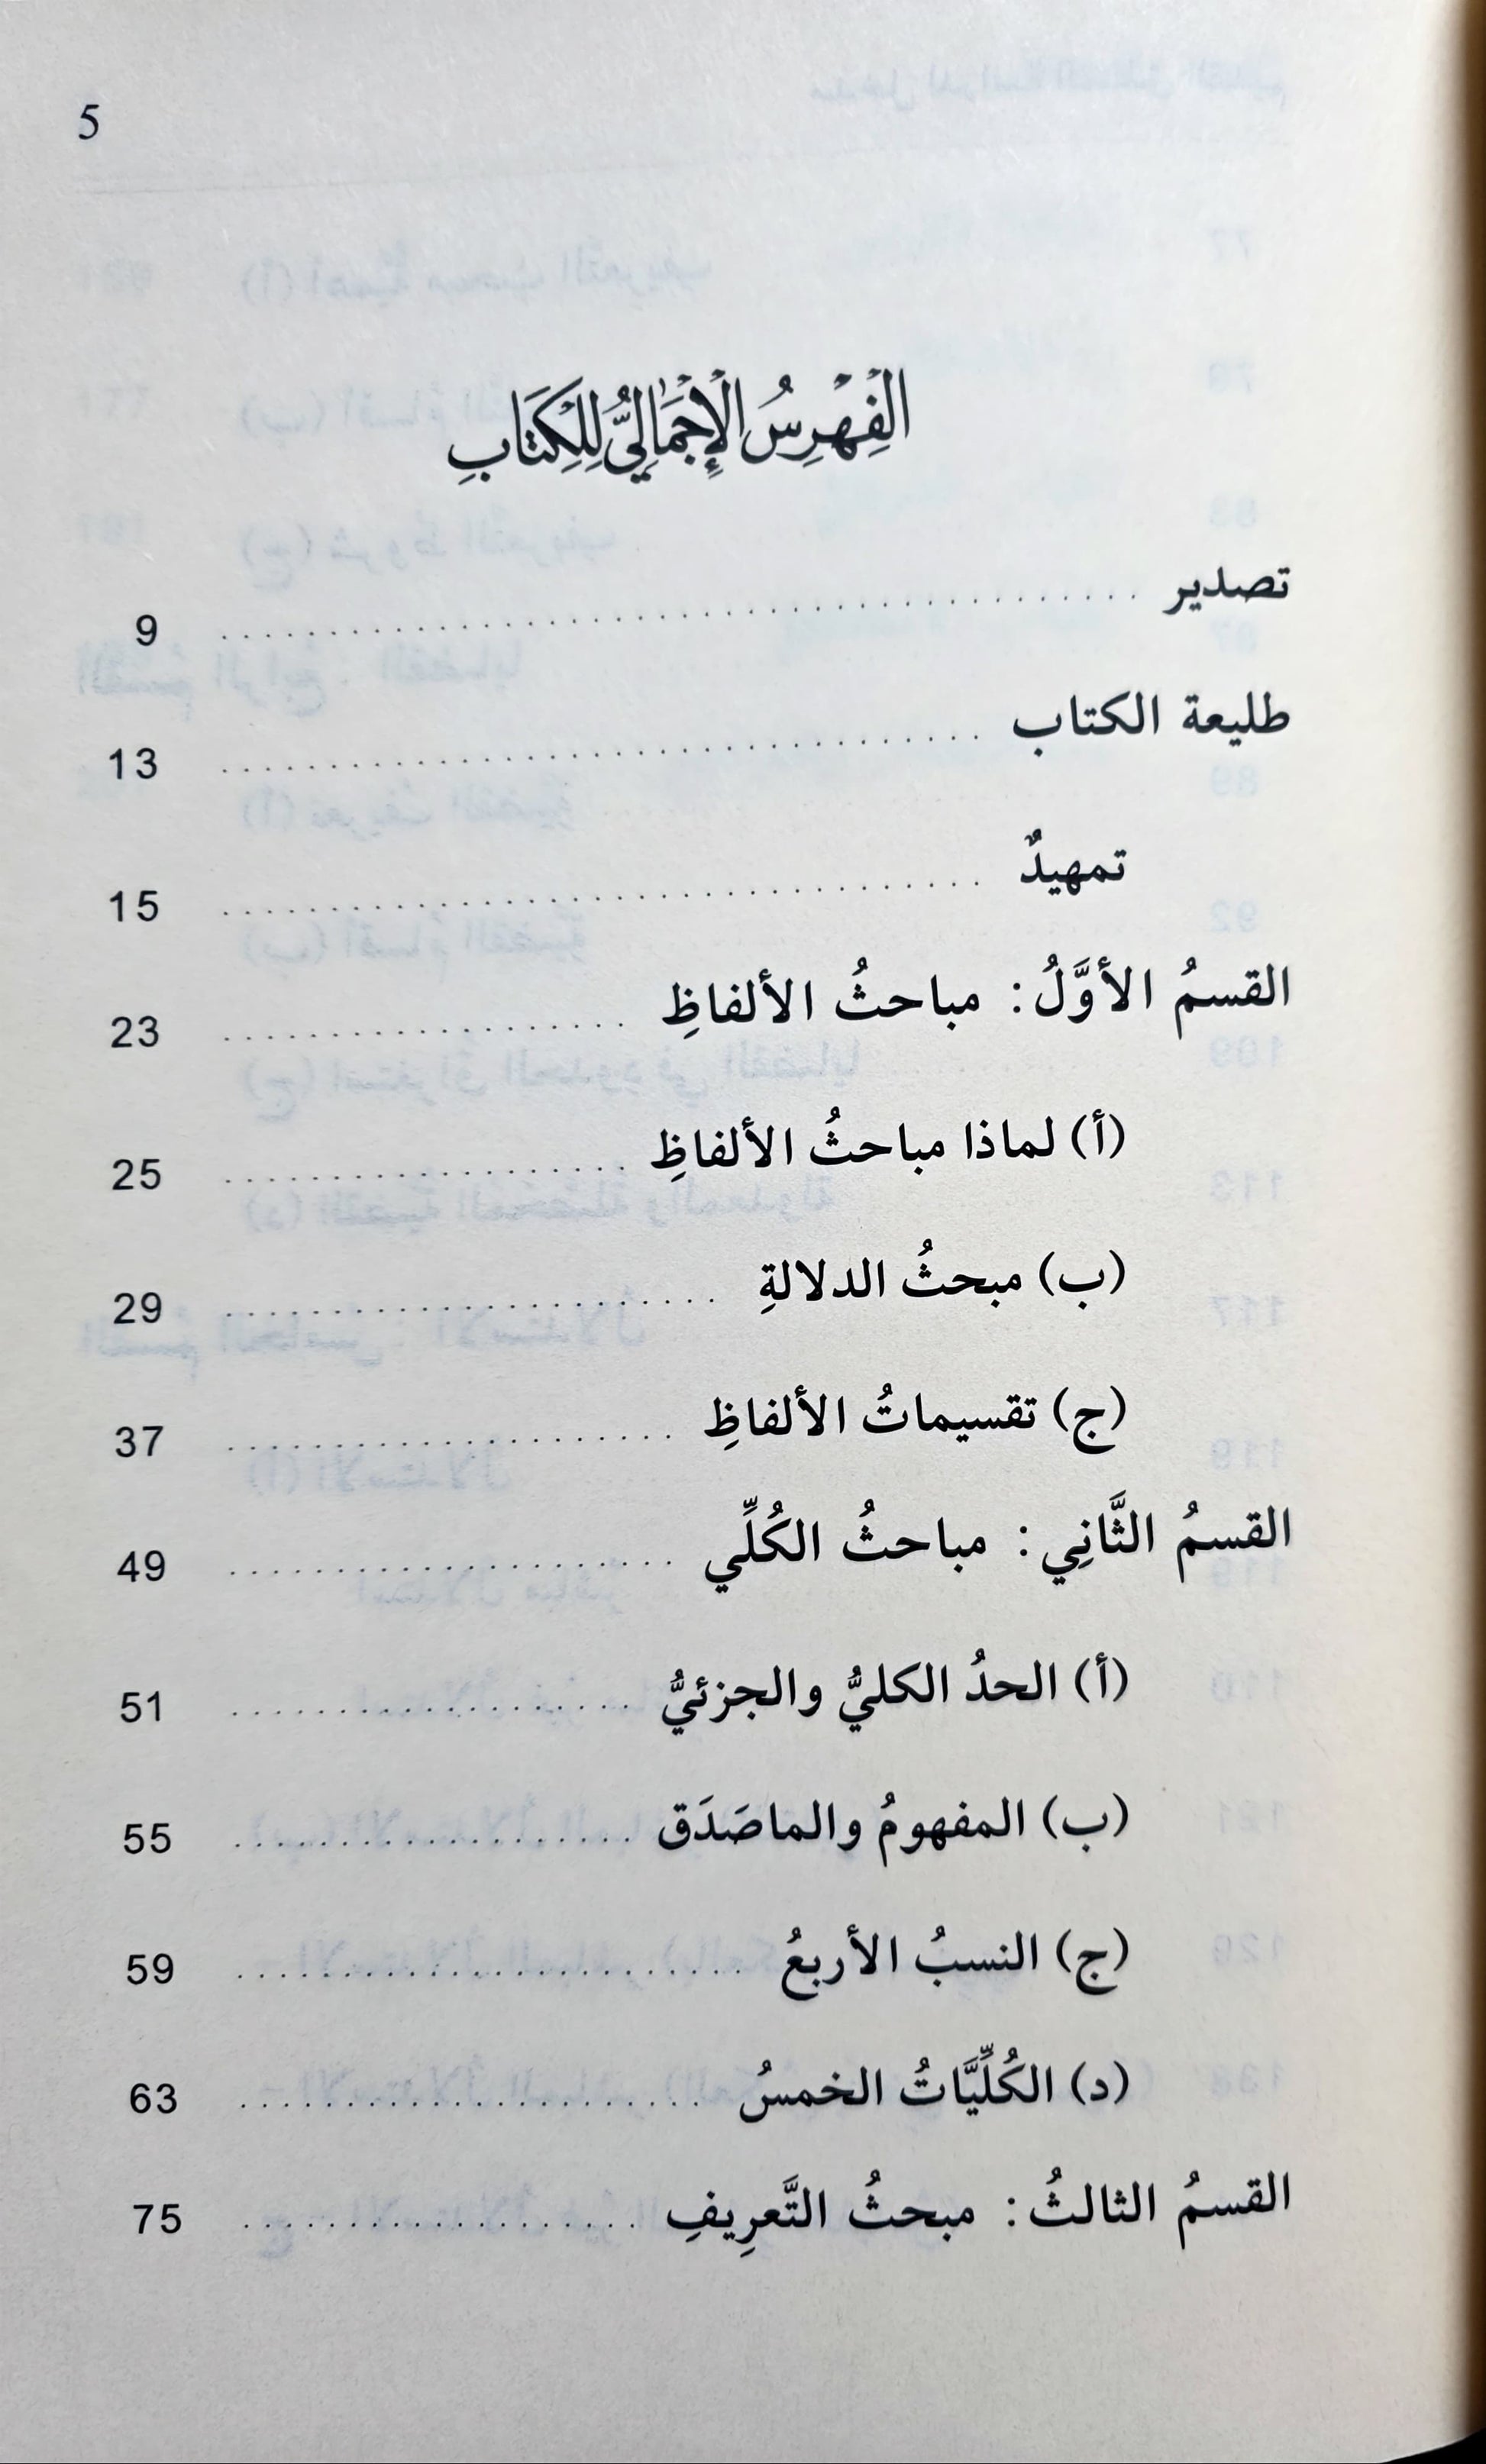 5
الفِهْرِسُ الْإِجْمَالِيُّ لِلْكِتَابِ
تصدير ........................ 9
طليعة الكتاب ........................ 13
تمهيدٌ ........................ 15
القسمُ الأوَّلُ : مباحثُ الألفاظِ ........................ 23
(أ) لماذا مباحثُ الألفاظِ ........................ 25
(ب) مبحثُ الدلالةِ ........................ 29
(ج) تقسيماتُ الألفاظِ ........................ 37
القسمُ الثَّانِي : مباحثُ الكُلِّي ........................ 49
(أ) الحدُ الكليُّ والجزئيُّ ........................ 51
(ب) المفهومُ والماصَدَق ........................ 55
(ج) النسبُ الأربعُ ........................ 59
(د) الكُلِّيَّاتُ الخمسُ ........................ 63
القسمُ الثالثُ : مبحثُ التَّعرِيفِ ........................ 75